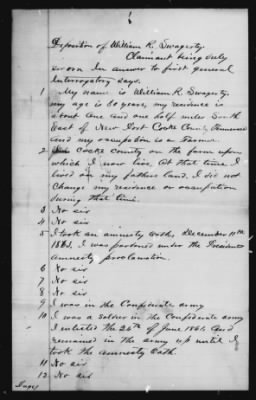 Deposition of William R. Swagerty.
Claimant being duly
sworn In answer to first general
Interrogatory says.
1 My name is William R. Swagerty,
my age is 30 years, my residence is
about one and one half miles South
East of New Port Cocke County Tennessee
and my occupation is a Farmer.
2 Cocke County on the farm upon
which I now live. At that time I
lived on my fathers land. I did not
Change my residence or occupation
during that time.
3 No sir
4 No sir
5 I took an amnesty oath, December 11th
1863. I was pardoned under the Presidents
Amnesty proclamation.
6 No sir
7 No sir
8 No sir
9 I was in the Confederate army
10 I was a soldier in the Confederate army
I enlisted the 26th of June 1861. and
remained in the army up until I
took the amnesty oath.
11 No sir
12 No sir